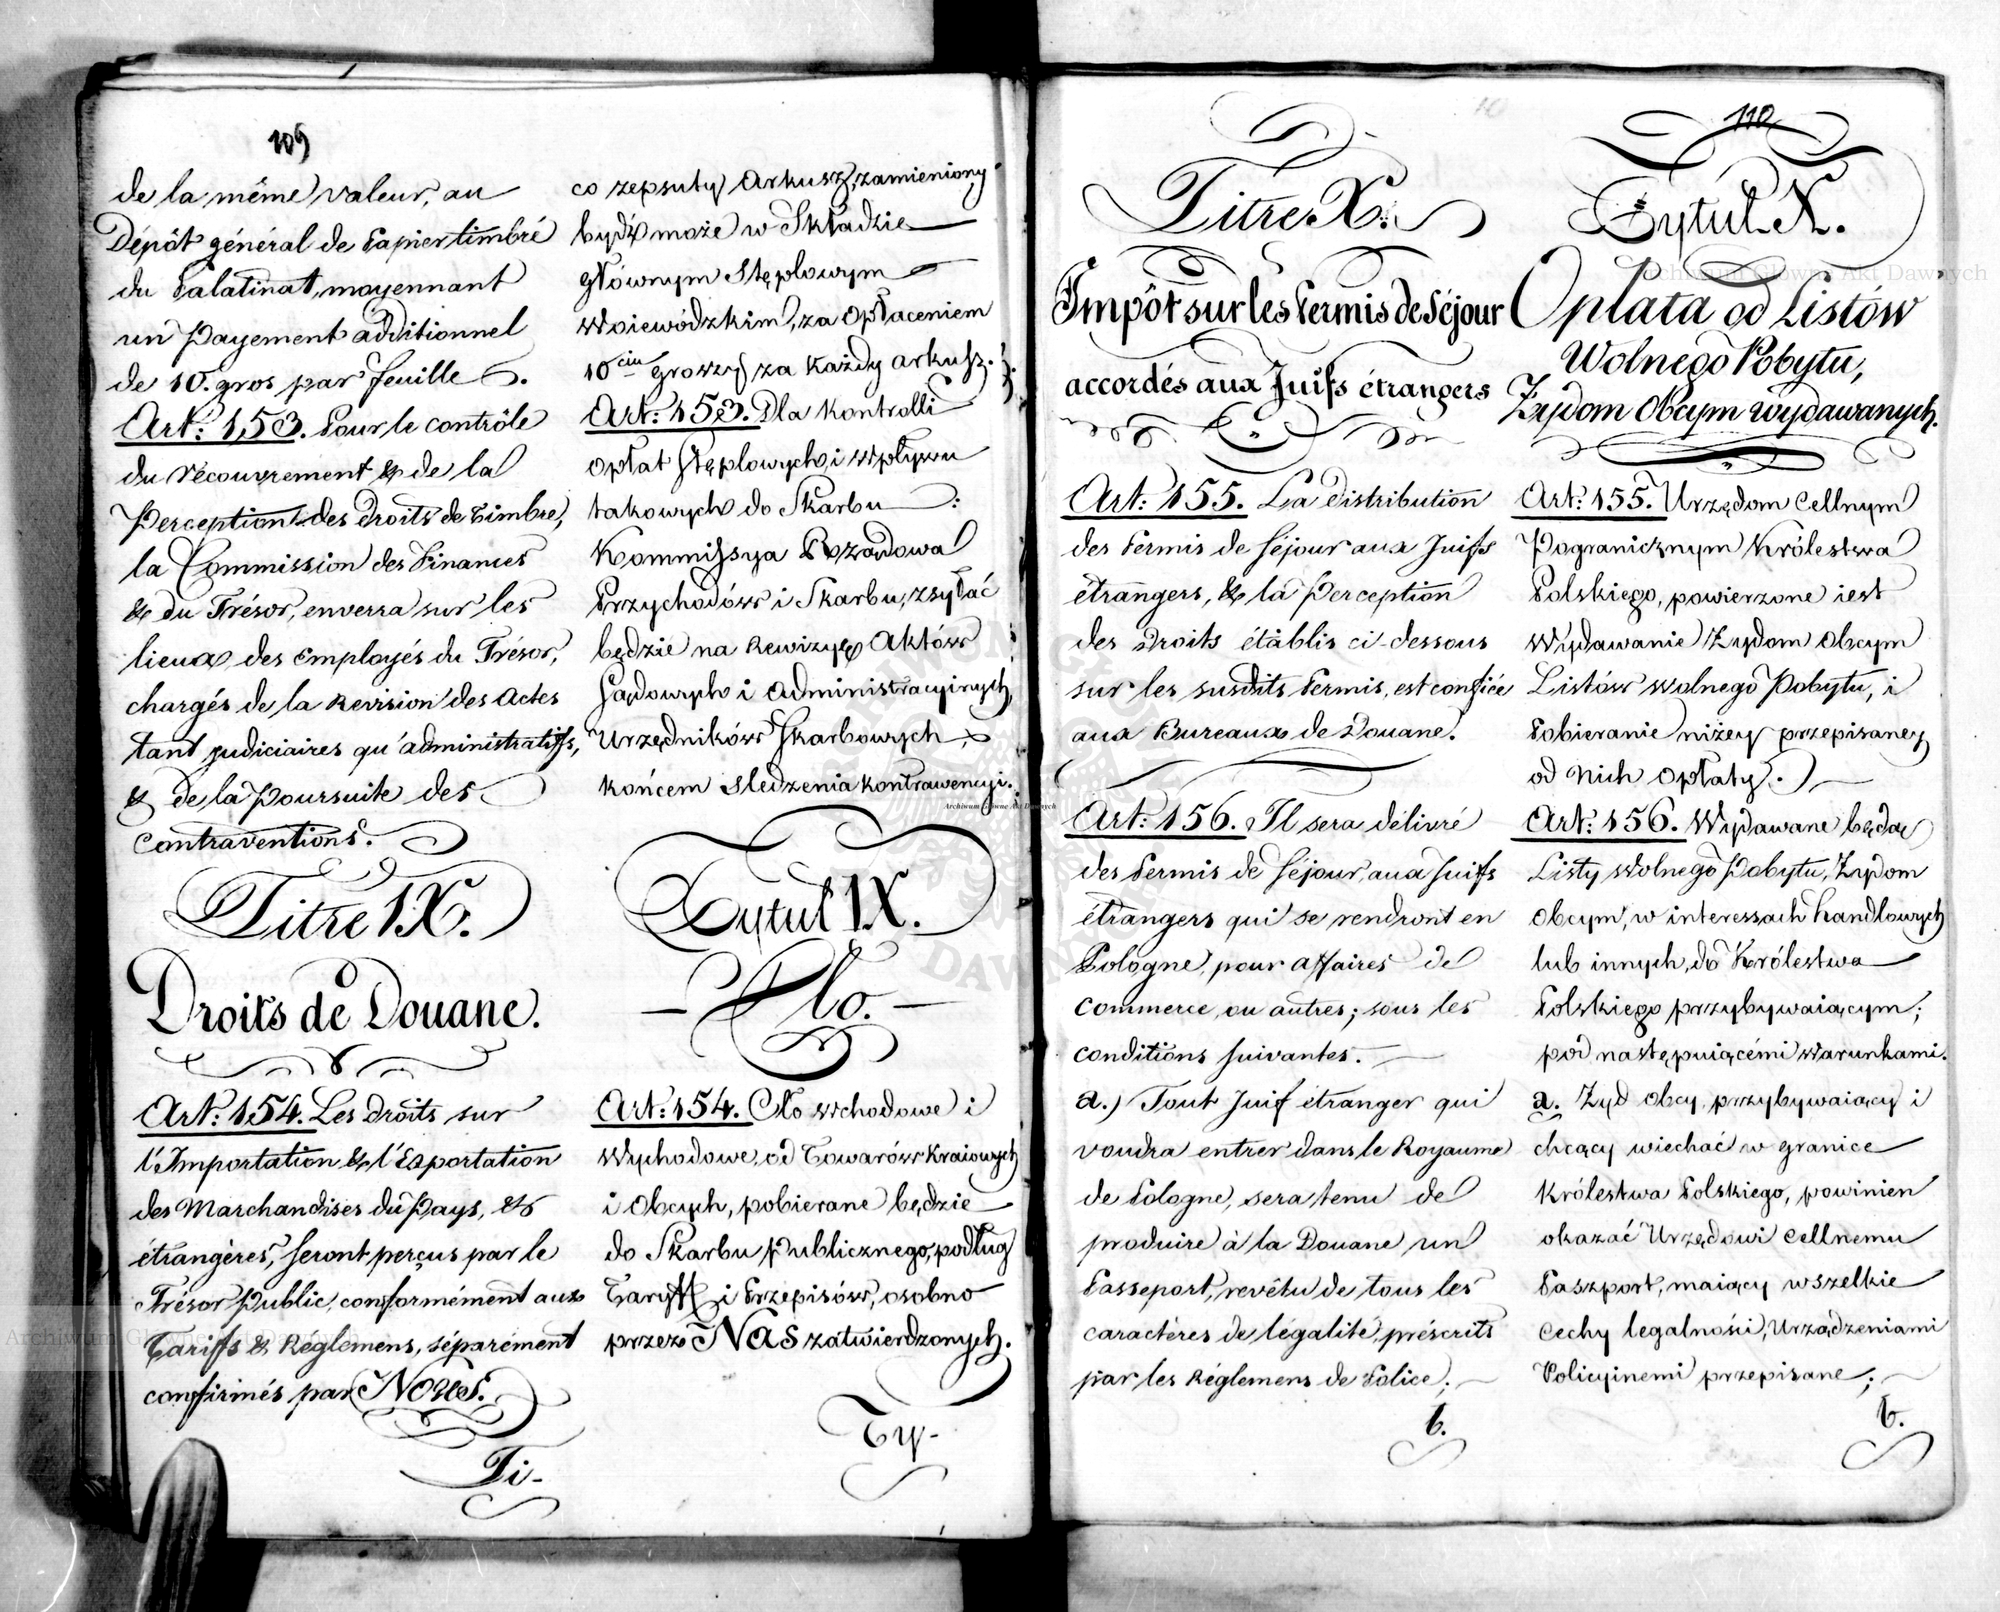 109
de la même valeur, au
Dépôt général de Papier timbré
du Palatinat, moyennant
un Payement additionnel
de 10. gros par feuille.
Art: 153. Pour le contrôle
du récouvrement & de la
Perception des droits de Timbre,
la Commission des Finances
& du Trésor, enverra sur les
lieux des Employés du Trésor,
chargés de la Revision des Actes
tant judiciaires qu'administratifs,
& de la Poursuite des
Contraventions.
Titre IX.
Droits de Douane.
Art: 154. Les droits sur
l'Importation & l'Exportation
des Marchandises du Pays, &
étrangères, seront perçus par le
Trésor Public, conformément aux
Tariffs & Réglemens, séparément
confirmés par Nous.
Ti-
co zepsuty Arkusz, zamieniony
bydź może w Składzie
głównym Stęplowym
Woiewódzkim, za opłaceniem
10ciu groszy za każdy arkusz.
Art: 153. Dla kontrolli
opłat stęplowych, i wpływu
takowych do Skarbu:
Kommissya Rządowa
Przychodów i Skarbu, zsyłać
będzie na Rewizyę Aktów
Sądowych i administracyinych,
Urzędników Skarbowych,
końcem sledzenia kontrawencyi.
Tytuł IX.
Cło.
Art: 154. Cło wchodowe i
Wychodowe, od Towarów kraiowych
i Obcych, pobierane będzie
do Skarbu Publicznego, podług
Taryff i Przepisów, osobno
przez NAS zatwierdzonych.
Ty-
110
Titre X.
Impôt sur les Permis de Séjour
accordés aux Juifs étrangers
Art: 155. La distribution
des Permis de Séjour aux Juifs
étrangers, & la Perception
des Droits établis ci-dessous
sur les susdits Permis, est confiée
aux Bureaux de Douane.
Art: 156. Il sera délivré
des Permis de Séjour, aux Juifs
étrangers qui se rendront en
Pologne, pour affaires de
commerce, ou autres; sous les
conditions suivantes.
a.) Tout Juif étranger qui
voudra entrer dans le Royaume
de Pologne, sera tenu de
produire à la Douane un
Passeport, revêtu de tous les
caractères de légalité, préscrits
par les Réglemens de Police;
b.
Tytuł X.
Opłata od Listów
Wolnego Pobytu,
Żydom Obcym wydawanych.
Art: 155. Urzędom Cellnym
Pogranicznym Królestwa
Polskiego, powierzone iest
Wydawanie Żydom obcym
Listów wolnego Pobytu, i
Pobieranie niżey przepisaney
od nich opłaty.
Art: 156. Wydawane będą
Listy Wolnego Pobytu, Żydom
obcym, w interessach handlowych
lub innych, do Królestwa
Polskiego przybywaiącym;
pod następuiącémi warunkami.
a. Żyd obcy przybywaiący i
chcący wiechać w granice
Królestwa Polskiego, powinien
okazać Urzędowi Cellnemu
Paszport, maiący wszelkie
cechy legalności, Urządzeniami
Policyinemi przepisane;
b.
Archiwum Główne Akt Dawnych
Archiwum Główne Akt Dawnych
Archiwum Główne Akt Dawnych